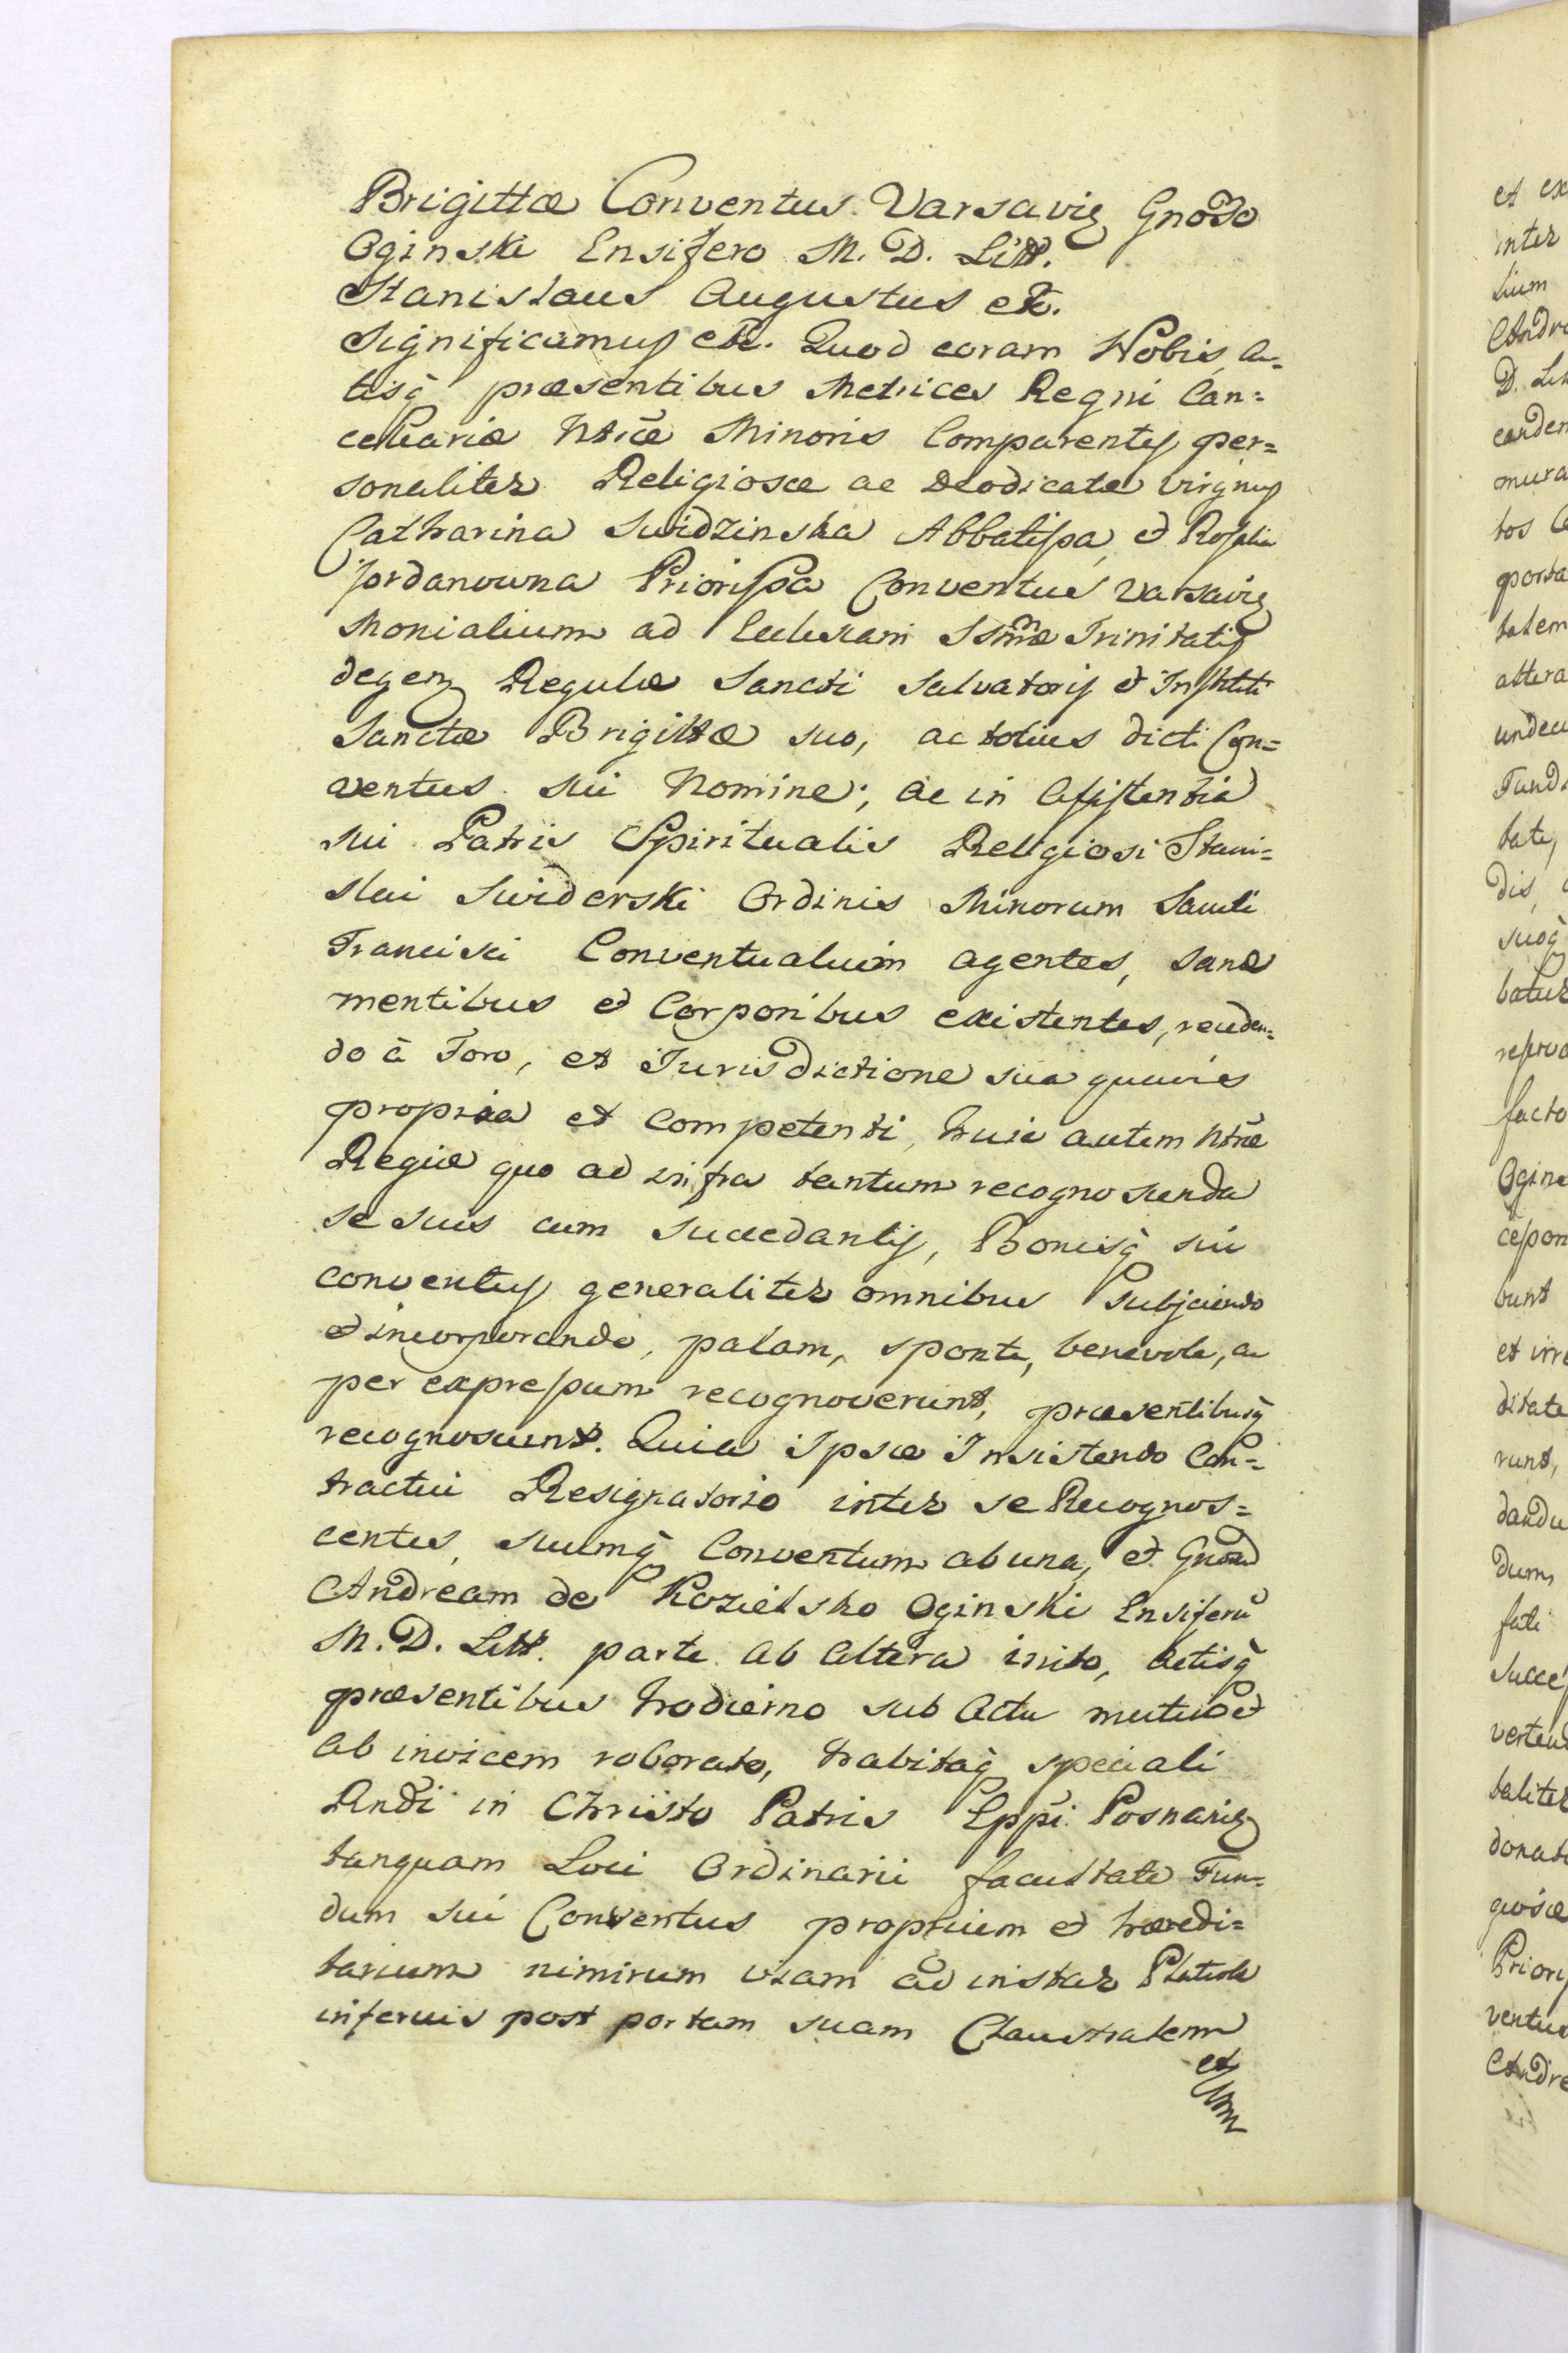 Brigittæ Conventus Varsavię Gnoso
Oginski Ensifero M. D. Litt.
Stanislaus Augustus etc.
Significamus etc. Quod coram Nobis, Ac-
tisq̃ præsentibus Metrices Regni Can=
cellariæ Ntræ Minoris Comparentes per=
sonaliter Religiosæ ac Deodicatæ Virgines
Catharina Swidzinska Abbatissa, et Rosalia
Jordanowna Priorissa Conventus Varsavię
Monialium ad Ecclesiam Ssmæ Trinitatis
degen. Regulæ Sancti Salvatoris et Instituti
Sanctæ Brigittæ suo, ac totius dicti Con=
ventus sui Nomine; ac in Assistentia
sui Patris Spiritualis Religiosi Stani=
slai Swiderski Ordinis Minorum Sancti
Francisci Conventualium agentes, sanæ
mentibus et Corporibus existentes, receden=
do à Foro, et Jurisdictione sua quavis
propria et Competenti, huic autem Ntræ
Regiæ quo ad infra tantum recognoscenda
se suis cum Succedantis, Bonisq̃ sui
conventus generaliter omnibus Subjiciendo
et incorporando, palam, sponte, benevole, ac
per expressum recognoverunt, præsentibusq̃
recognoscunt. Quia Ipsæ Insistendo Con=
tractui Resignatorio inter se Recognos=
centes, suumq̃ Conventum ab una, et Gnosum
Andream de Kozielsko Oginski Ensiferũ
M. D. Litt. parte ab altera inito, Actisq̃
præsentibus hodierno sub Actu mutuo et
ab invicem roborato, habitaq̃ speciali
Rndi in Christo Patris Eppi Posnanię
tanquam Loci Ordinarii facultate Fun=
dum sui Conventus proprium et hæredi=
tarium nimirum viam ad instar Plateole
inservis post portam suam Claustralem
et
et ex
inter
lium
Andre
D. Lit
eanden
mura
tos
porta
tatem
altera
undec
Fund
tate,
dis,
suoq̃
batur
reserva
facto
Ogins
cepon
bunt
et irre
ditate
runt,
dandu
dum
fati
Succes
vertend
taliter
donat
giosæ
Prioris
ventus
Andre